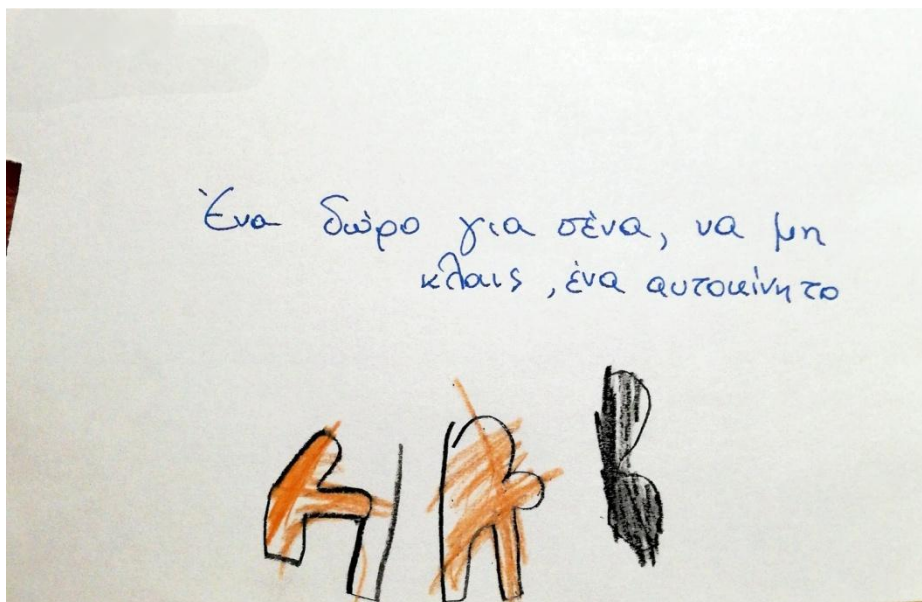 Ένα δώρο για σένα, να μη
κλαις, ένα αυτοκίνητο